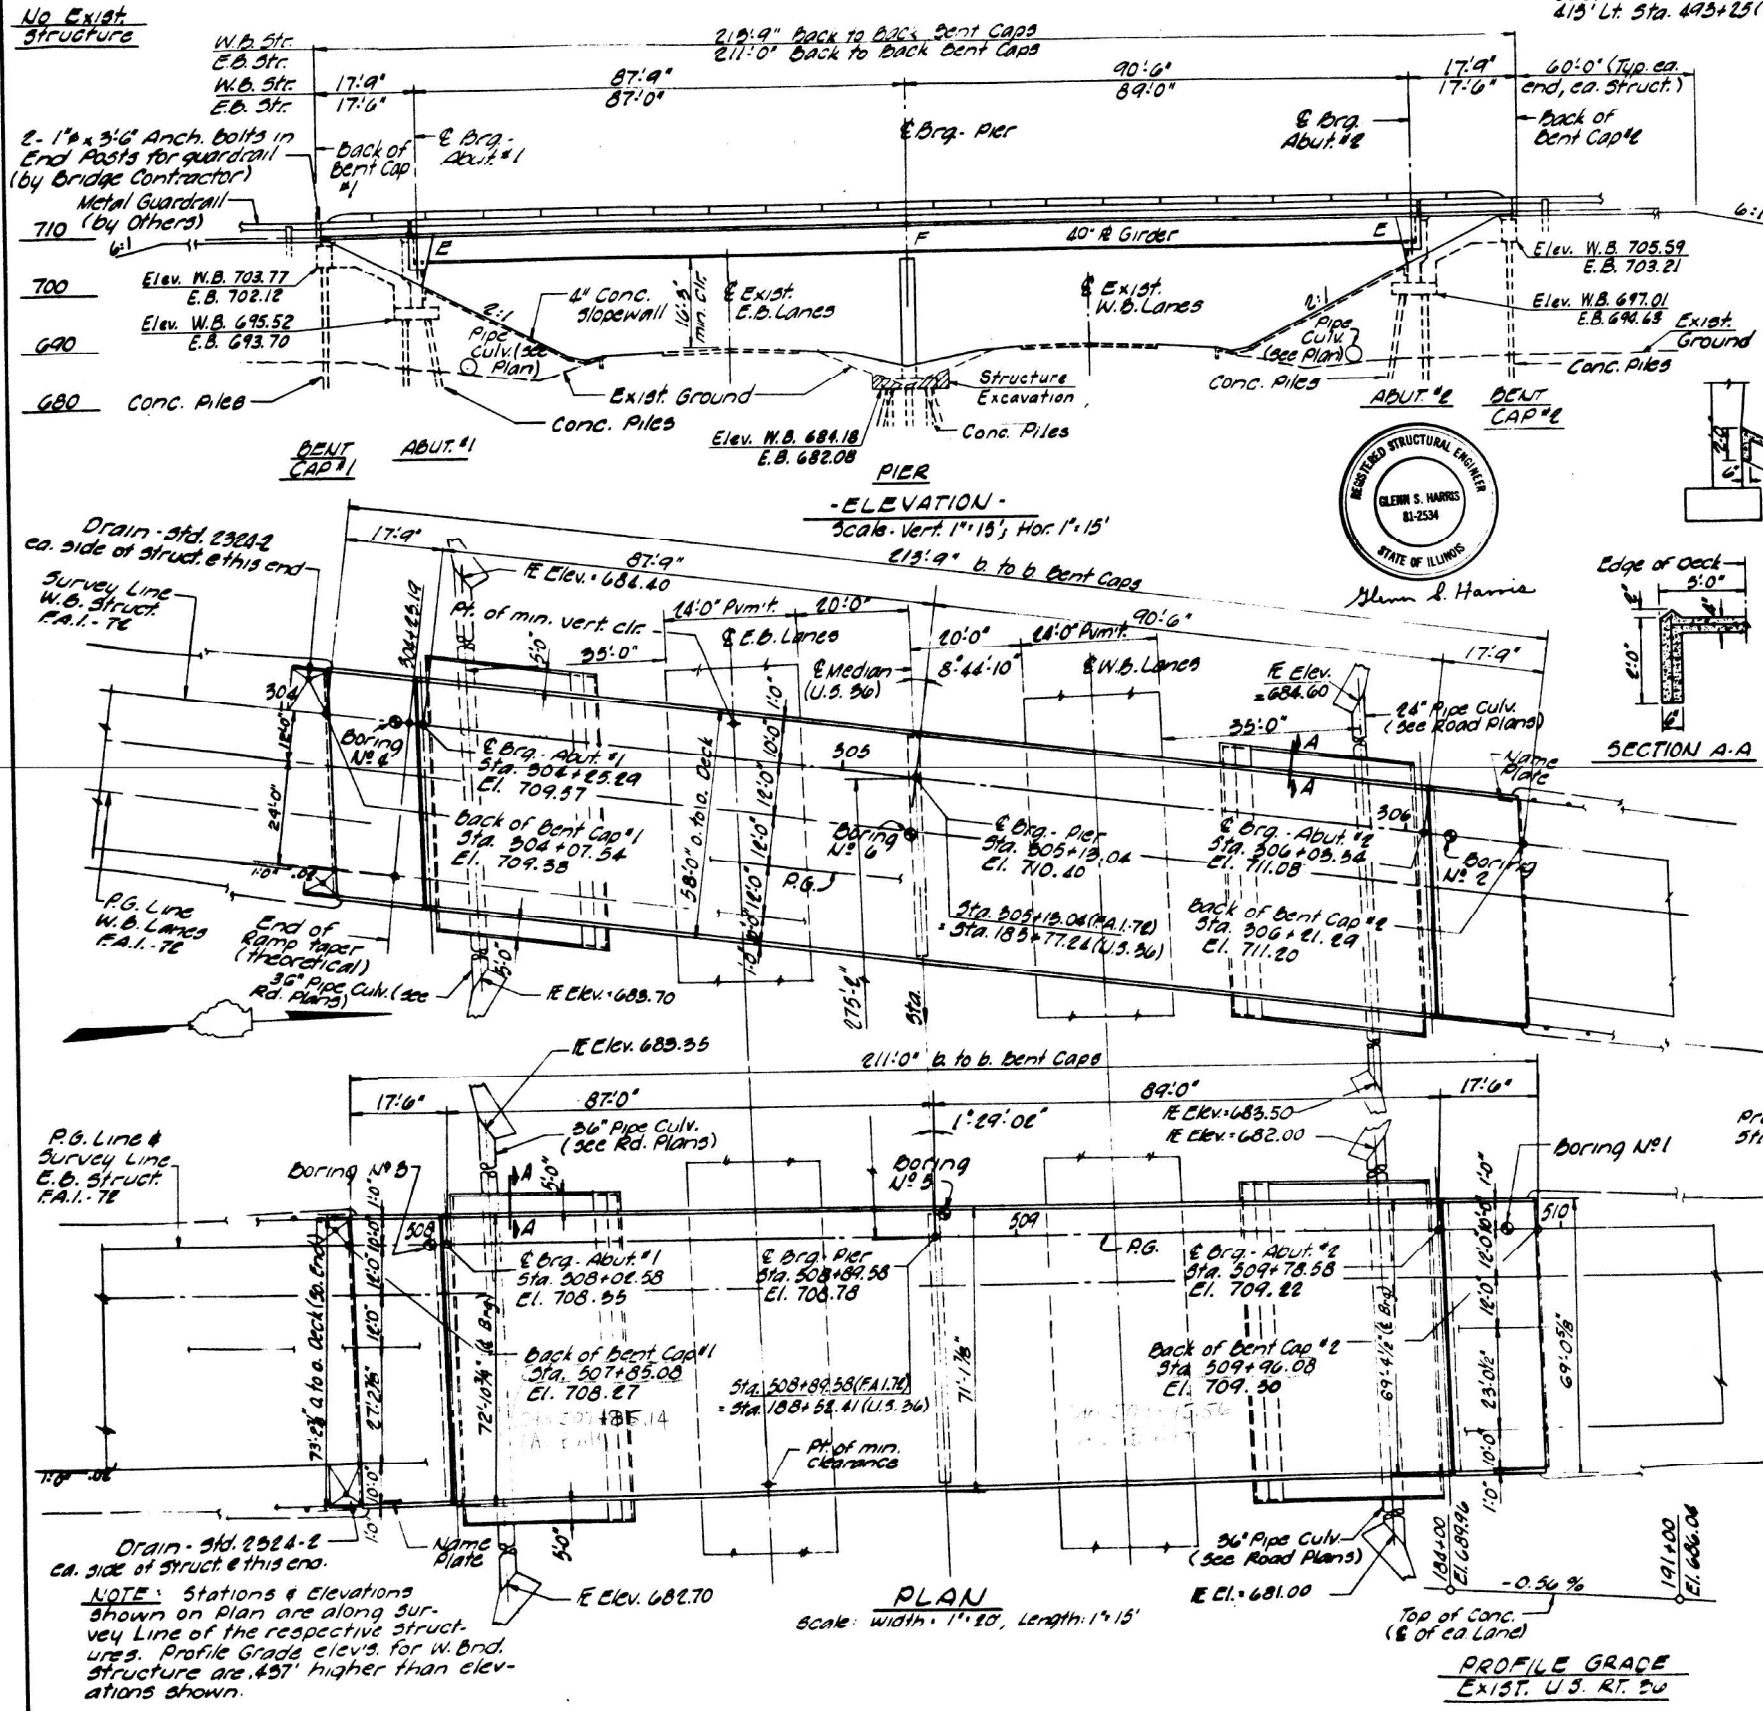 No Exist.
Structure
413' Lt. Sta. 493+25
W.B. Str.
E.B. Str.
W.B. Str.
E.B. Str.
213'-9" Back to Back Bent Caps
211'-0" Back to Back Bent Caps
17'-9"
17'-6"
87'-9"
87'-0"
90'-6"
89'-0"
17'-9"
17'-6"
60'-0" (Typ. ea.
end, ea. Struct.)
2- 1"φ x 3'-6" Anch. bolts in
End Posts for guardrail
(by Bridge Contractor)
Metal Guardrail
(by Others)
Back of
Bent Cap
#1
℄ Brg.-
Abut. #1
℄ Brg.- Pier
℄ Brg.
Abut. #2
Back of
Bent Cap #2
710
700
690
680
6:1
6:1
E
F
40" ℞ Girder
E
Elev. W.B. 703.77
E.B. 702.12
Elev. W.B. 695.52
E.B. 693.70
2:1
4" Conc.
Slopewall
16'-3"
min. clr.
℄ Exist.
E.B. Lanes
℄ Exist.
W.B. Lanes
2:1
Elev. W.B. 705.59
E.B. 703.21
Elev. W.B. 697.01
E.B. 694.63
Exist.
Ground
Pipe
Culv. (see
Plan)
Pipe
Culv.
(see Plan)
Conc. Piles
Conc. Piles
Exist. Ground
Structure
Excavation
Conc. Piles
Conc. Piles
Conc. Piles
Elev. W.B. 684.18
E.B. 682.08
BENT
CAP #1
ABUT. #1
PIER
ABUT. #2
BENT
CAP #2
-ELEVATION-
Scale: Vert. 1"=15'; Hor. 1"=15'
REGISTERED STRUCTURAL ENGINEER
GLENN S. HARRIS
81-2534
STATE OF ILLINOIS
Glenn S. Harris
2'-0"
6"
Edge of Deck
5'-0"
2"
4"
2'-0"
6"
SECTION A-A
Drain - Std. 2324-2
ea. side of struct. @ this end
Survey Line
W.B. Struct.
F.A.I.-72
17'-9"
87'-9"
213'-9" b. to b. Bent Caps
90'-6"
17'-9"
304+23.19
℔ Elev. = 684.40
Pt. of min. vert. clr.
24'-0" Pvm't.
20'-0"
℄ E.B. Lanes
35'-0"
5'-0"
℄ Median
(U.S. 36)
20'-0"
24'-0" Pvm't.
8°-44'-10"
℄ W.B. Lanes
℔ Elev.
=684.60
35'-0"
24" Pipe Culv.
(See Road Plans)
Name
Plate
304
12'-0"
24'-0"
1'-0"
.02
Boring
No 4
℄ Brg. - Abut. #1
Sta. 304+25.29
El. 709.57
Back of Bent Cap #1
Sta. 304+07.54
El. 709.38
58'-0" o. to o. Deck
1'-0" 10'-0" 12'-0" 12'-0" 12'-0"
P.G.
305
Boring
No 6
℄ Brg. - Pier
Sta. 305+13.04
El. 710.40
Sta. 305+13.04 (F.A.I.-72)
= Sta. 185+77.24 (U.S. 36)
A
A
℄ Brg. - Abut. #2
Sta. 306+03.54
El. 711.08
Back of Bent Cap #2
Sta. 306+21.29
El. 711.20
306
Boring
No 2
P.G. Line
W.B. Lanes
F.A.I.-72
End of
Ramp taper
(theoretical)
36" Pipe Culv. (see
Rd. Plans)
5'-0"
℔ Elev. = 683.70
275'-2"
Sta.
℔ Elev. 683.35
211'-0" b. to b. Bent Caps
17'-6"
87'-0"
89'-0"
17'-6"
36" Pipe Culv.
(see Rd. Plans)
1°-29'-02"
℔ Elev. = 683.50
℔ Elev. = 682.00
P.G. Line &
Survey Line
E.B. Struct.
F.A.I.-72
Boring No 3
Boring
No 5
Boring No 1
A
A
5'-0"
1'-0"
10'-0"
12'-0"
12'-0"
508
509
510
P.G.
℄ Brg. - Abut. #1
Sta. 508+02.58
El. 708.35
℄ Brg. Pier
Sta. 508+89.58
El. 708.78
℄ Brg. - Abut. #2
Sta. 509+78.58
El. 709.22
Back of Bent Cap #1
Sta. 507+85.08
El. 708.27
Sta. 508+89.58 (F.A.I.72)
= Sta. 188+52.41 (U.S. 36)
Back of Bent Cap #2
Sta. 509+96.08
El. 709.30
72'-10¾" (℄ Brg)
71'-1⅞"
69'-4½" (℄ Brg)
69'-0⅝"
23'-0½"
12'-0"
10'-0"
1'-0"
10'-0"
1'-0"
Pt. of min.
Clearance
Drain - Std. 2324-2
ea. side of struct. @ this end.
Name
Plate
5'-0"
℔ Elev. 682.70
36" Pipe Culv.
(See Road Plans)
℔ El. = 681.00
NOTE: Stations & Elevations
shown on Plan are along Sur-
vey Line of the respective Struct-
ures. Profile Grade elev's. for W. Bnd.
structure are .437' higher than elev-
ations shown.
PLAN
Scale: Width: 1"=20', Length: 1"=15'
184+00
El. 689.96
-0.56 %
191+00
El. 686.04
Top of Conc.
(℄ of ea. Lane)
PROFILE GRADE
EXIST. U.S. RT. 36